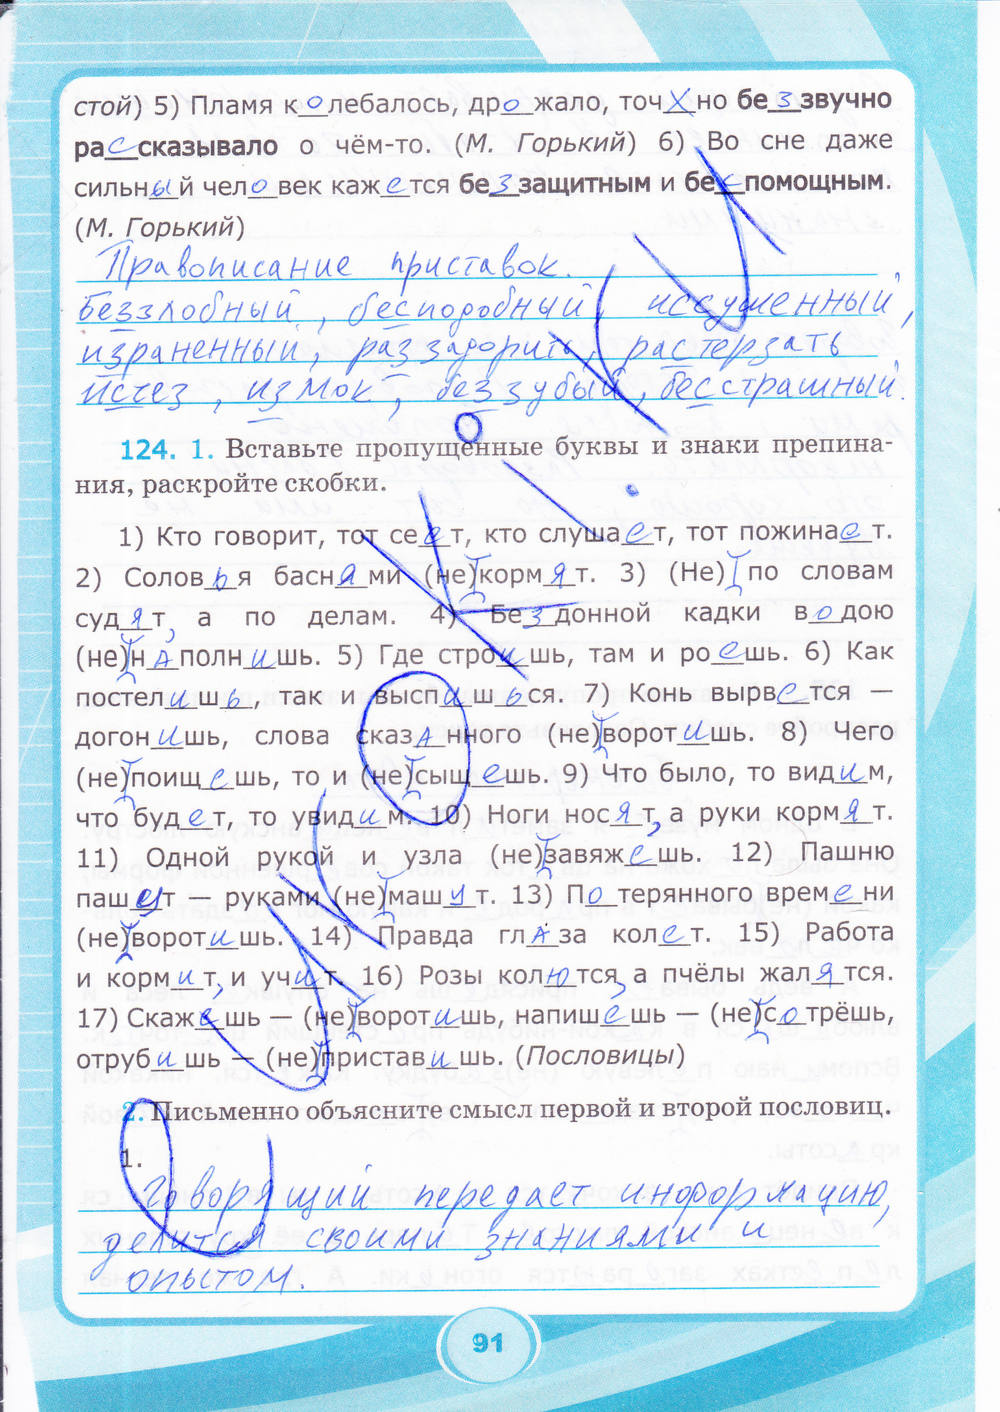 стой) 5) Пламя колебалось, дрожало, точ х но беззвучно
рассказывало о чём-то. (М. Горький) 6) Во сне даже
сильный человек кажется беззащитным и беспомощным.
(М. Горький)
Правописание приставок.
Беззлобный, бесподобный, иссушенный,
израненный, раззадорить, растерзать
исчез, измок, беззубый, бесстрашный.
124. 1. Вставьте пропущенные буквы и знаки препина-
ния, раскройте скобки.
1) Кто говорит, тот сеет, кто слушает, тот пожинает.
2) Соловья баснями (не)кормят. 3) (Не) по словам
судят, а по делам. 4) Бездонной кадки водою
(не)наполнишь. 5) Где строишь, там и роешь. 6) Как
постелишь, так и выспишься. 7) Конь вырвется —
догонишь, слова сказанного (не)воротишь. 8) Чего
(не)поищешь, то и (не)сыщешь. 9) Что было, то видим,
что будет, то увидим. 10) Ноги носят, а руки кормят.
11) Одной рукой и узла (не)завяжешь. 12) Пашню
пашет — руками (не)машут. 13) Потерянного времени
(не)воротишь. 14) Правда глаза колет. 15) Работа
и кормит, и учит. 16) Розы колются, а пчёлы жалятся.
17) Скажешь — (не)воротишь, напишешь — (не)сотрёшь,
отрубишь — (не)приставишь. (Пословицы)
2. Письменно объясните смысл первой и второй пословиц.
1.
Говорящий передает информацию,
делится своими знаниями и
опытом.
91